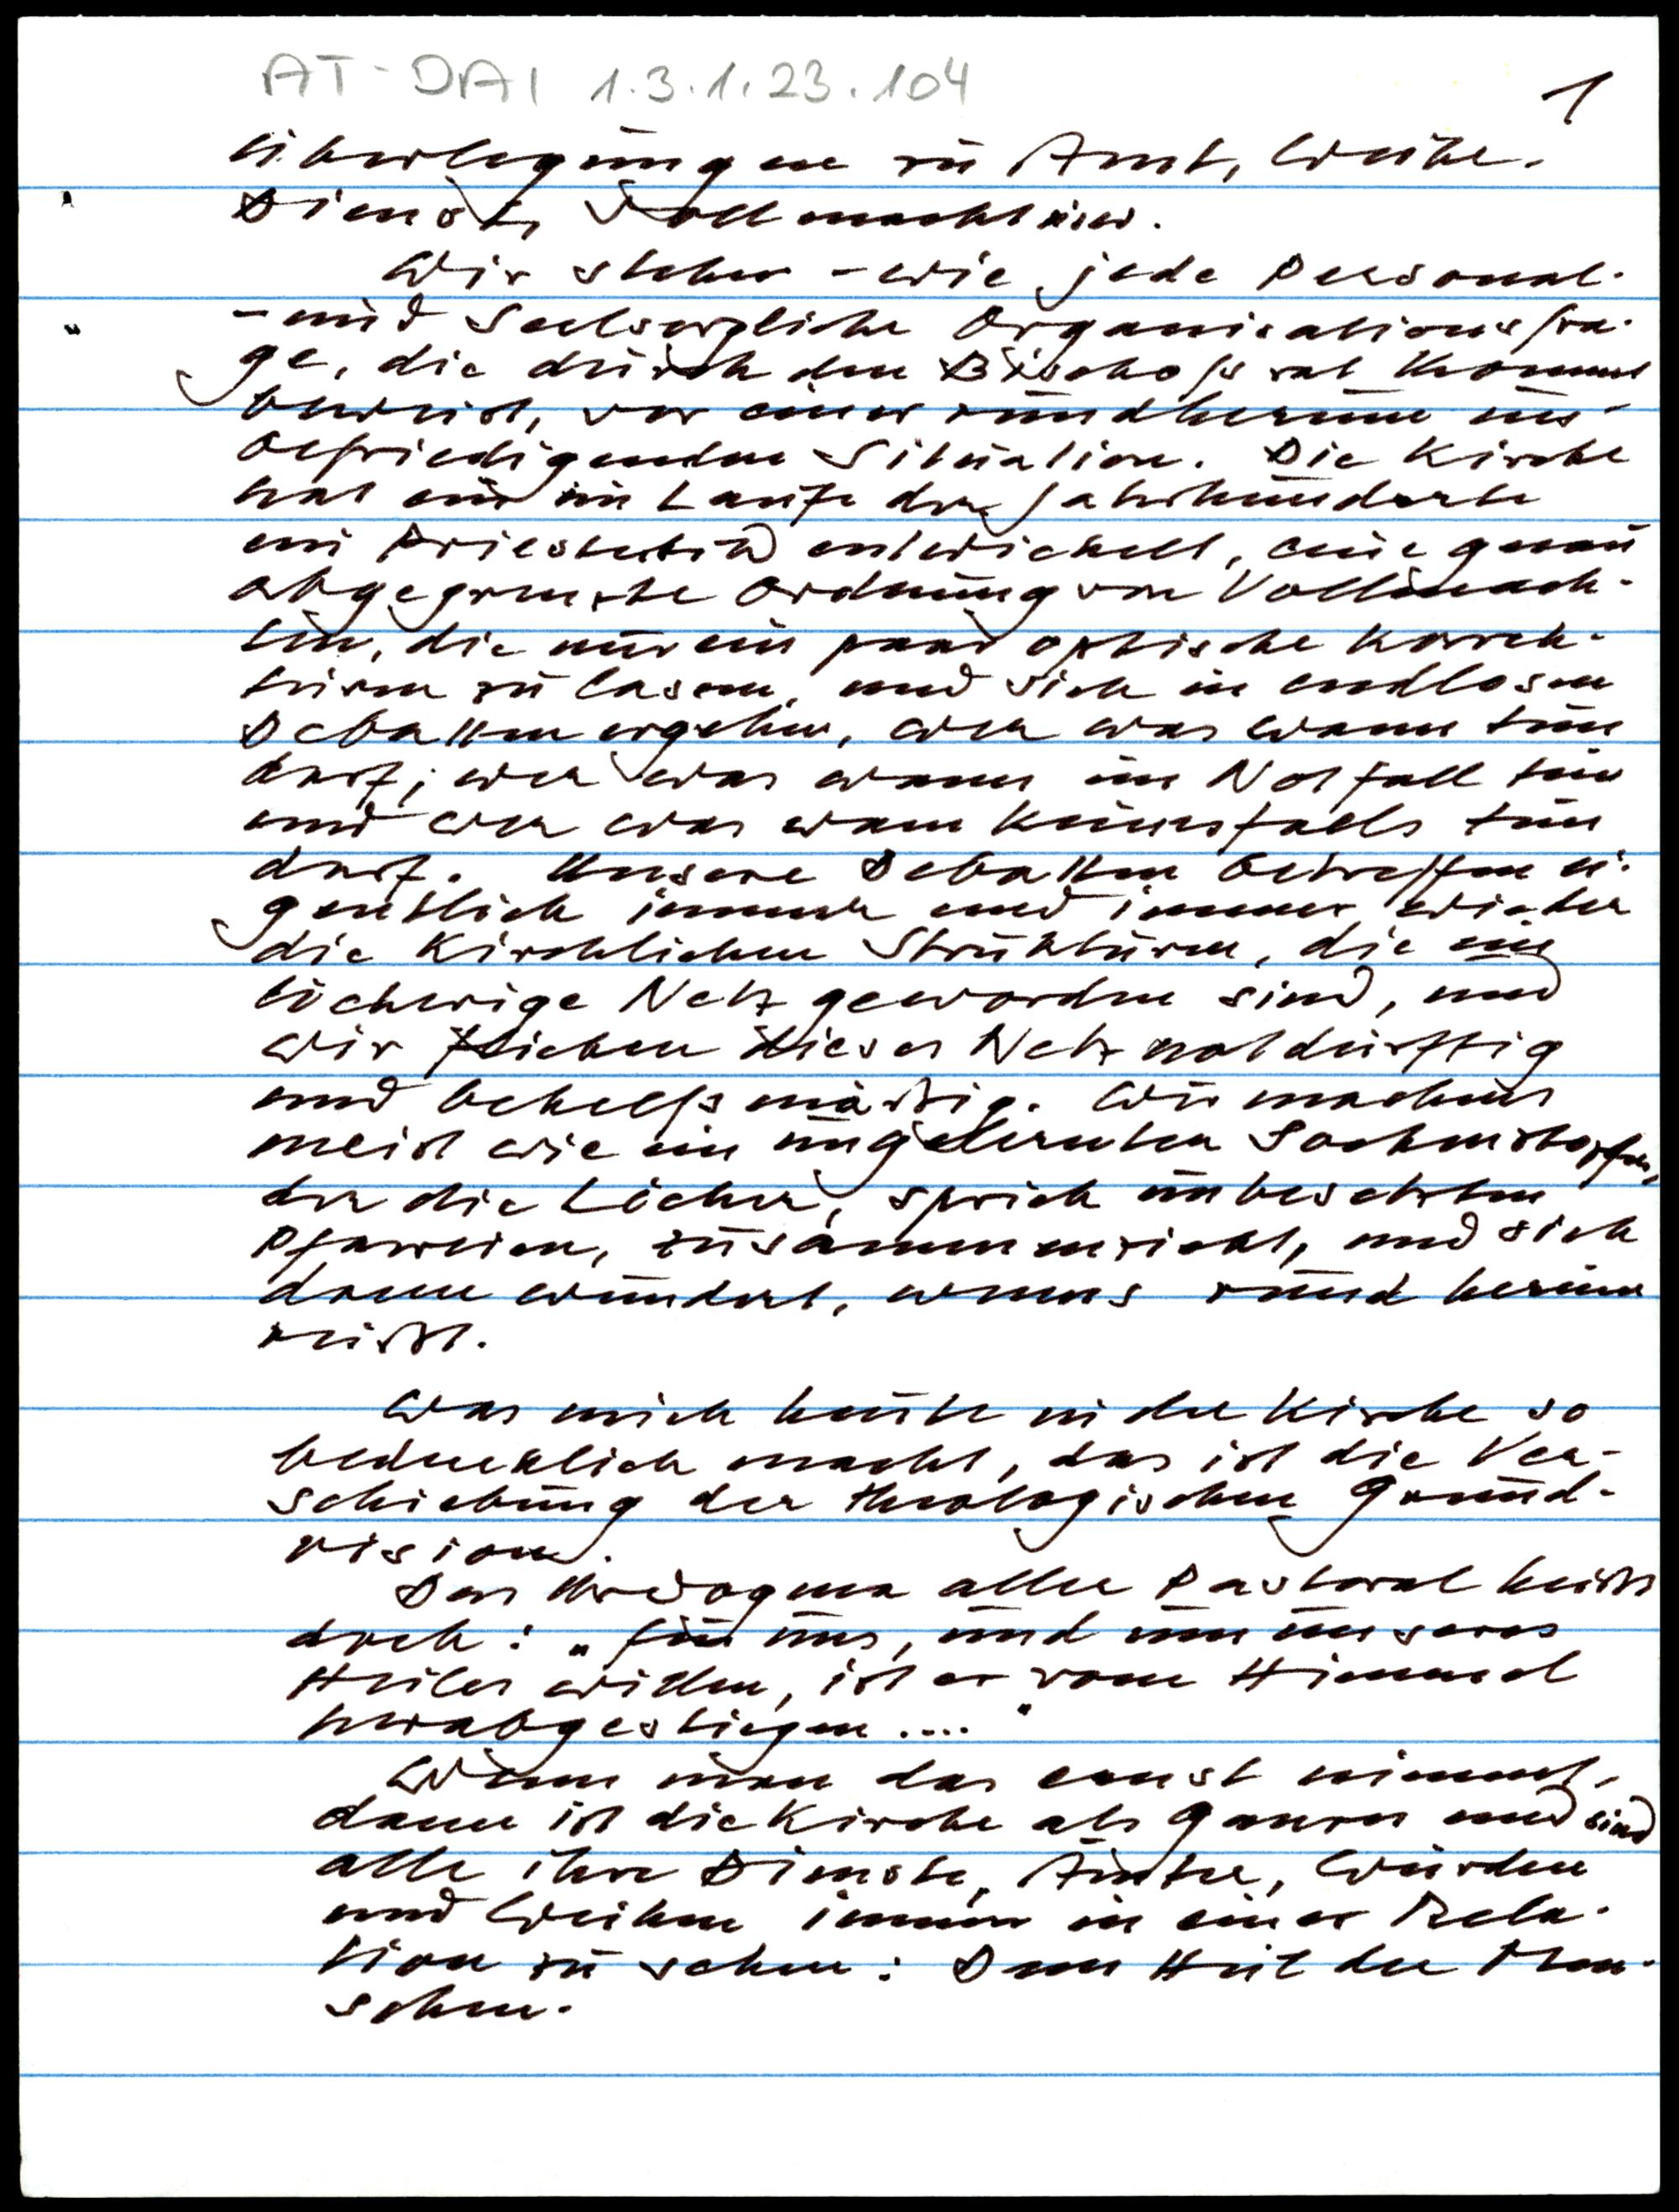 AT-DAI 1.3.1.23.104
1
Überlegungen zu Amt, Weihe.
Dienst, Vollmacht usw.
Wir stehen - wie jede Personal-
- und Seelsorgliche Organisationsfra-
ge, die durch den Bischofsrat kommt
beweist, vor einer rundherum un-
befriedigenden Situation. Die Kirche
hat im Laufe der Jahrhunderte
ein entwickelt, eine genau
abgegrenzte Ordnung von Vollmach-
ten, die nur ein paar optische Korrek-
turen zu lassen, und sich in endlosen
Debatten ergehen, wer was wann tun
darf; wer was wann im Notfall tun
und wer was wann keinesfalls tun
darf. Unsere Debatten betreffen ei-
gentlich immer und immer wieder
die Kirchlichen Strukturen, die ein
löcherige Netz geworden sind, und
wir flicken dieses Netz notdürftig
und behelfsmäßig. Wir machens
meist wie ein ungelernter Sockenstopfer,
der die Löcher, sprich unbesetzten
Pfarreien, zusammenzieht, und sich
dann wundert, wenns rund herum
reißt.
Was mich heute in der Kirche so
bedenklich macht, das ist die Ver-
schiebung der theologischen Grund-
vision.
Das Urdogma aller Pastoral heißt
doch: "für uns, und um unseres
Heiles willen, ist er vom Himmel
herabgestiegen...."
Wenn man das ernst nimmt,
dann ist die Kirche als Ganzes und sind
alle ihre Dienste, Ämter, Würden
und Weihen immer in einer Rela-
tion zu sehen: Dem Heil der Men-
schen.